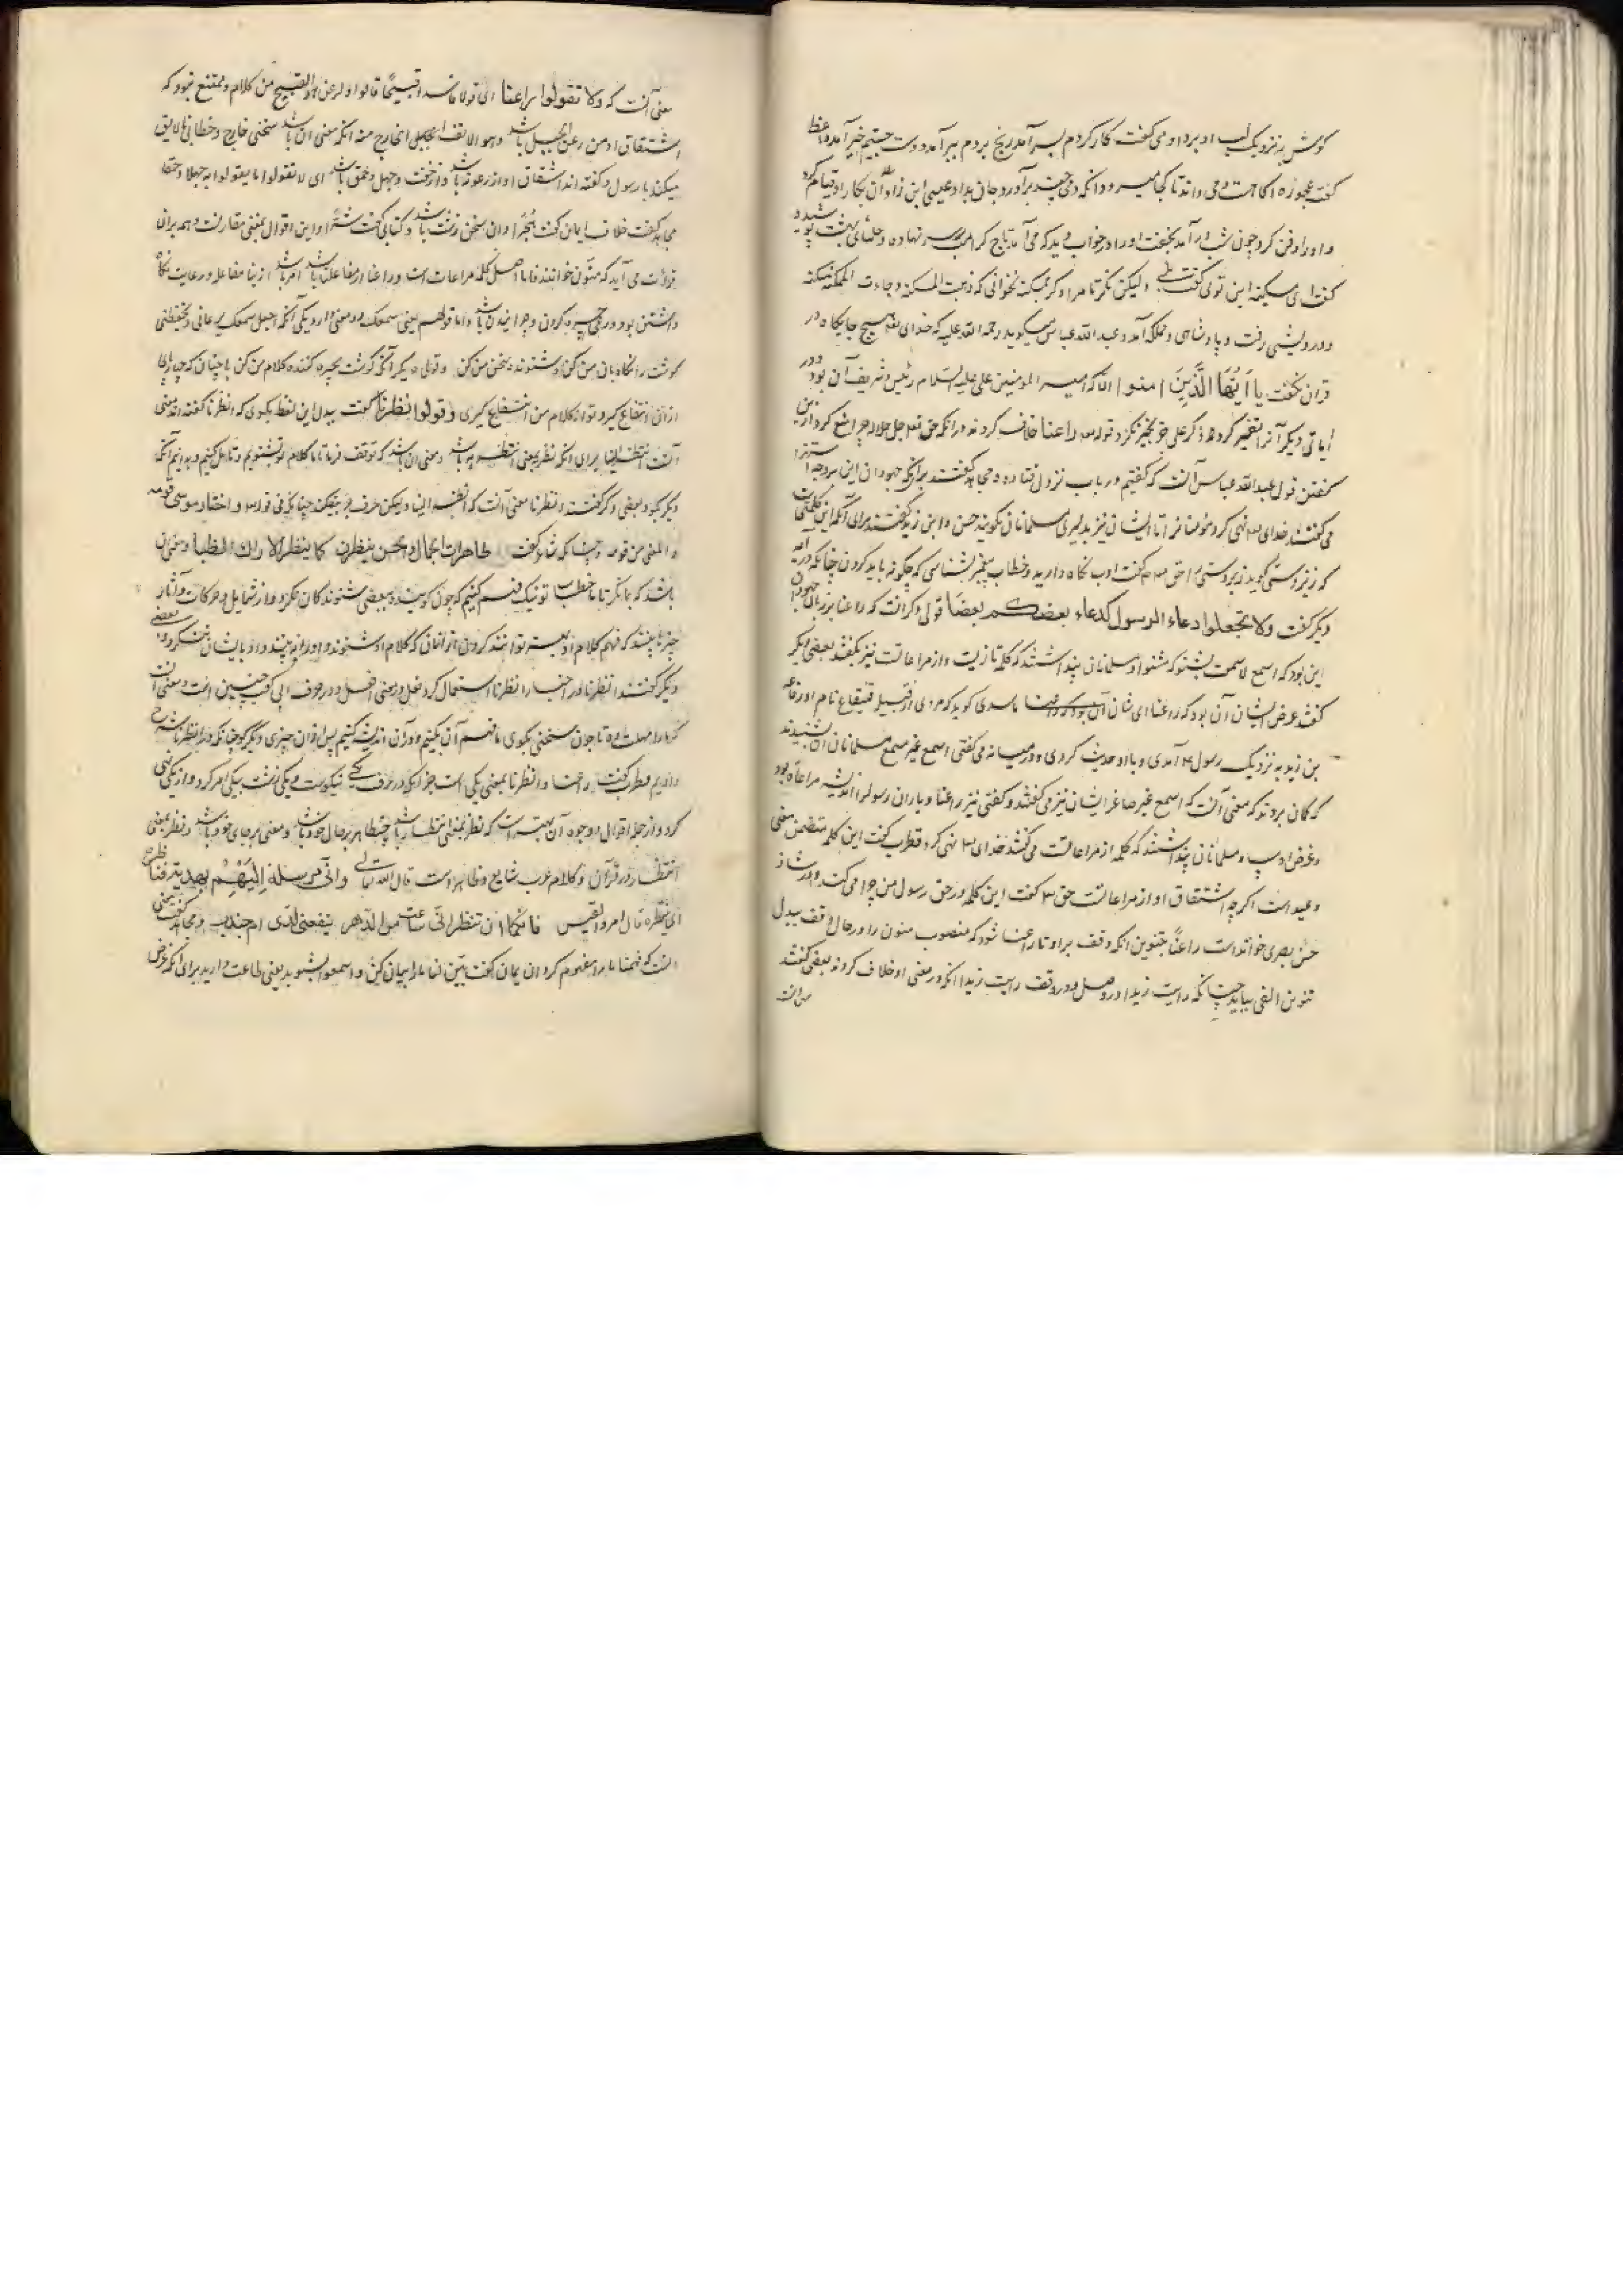 کوش به نزدیک لب او برد او می کفت کار کردم بسر آمد رنج بردم ببر آمد دوست جستیم خیر آمد واعظ
کفت عجوزه آکاهست و می داند تا کجا میرود آنکه دمی چند برآورد و جان بداد عیسی ابن زاذان بکار او قیام کرد
و او را دفن کرد چون شب در آمد بخفت او را در خواب دید که می آمد تاج کرامت بر سر نهاده و حلهای بهشت پوشیده
کفت ای مسکینه این توی کفت بلی ولیکن نکر تا مرا دکر مسکینه نخوانی که ذهبت المسکنة وجاءت المملکة مسکنه
و درویشی رفت و پادشاهی و مملکه آمد و عبد الله عباس میکوید رحمة الله علیه که خدای تع هیچ جایکاه در
قرآن نکفت یا اَیُّهَا الَّذینَ امنوا الا که امیر المؤمنین علی علیه السّلام رئیس و شریف آن بود و در
ایاتی دیکر آنرا تغییر کرد و ذکر علی جز بخیر نکرد قوله راعنا خلاف کردند در انکه حق تع جل جلاله چرا منع کرد از این
کفتن قول عبدالله عباس آنست که کفتیم در باب نزول قتاده و مجاهد کفتند برای آنکه جهودان این بر وجه استهزا
می کفتند خدای تع نهی کرد مؤمنانرا تا ایشان نیز بدلیری مسلمانان نکویند حسن و ابن زید کفتند برای آنکه این کلمتی است
که زیردستی کوید زبردستی را حق تع کفت ادب نکاه دارید و خطاب پیغمبر بشناسی که چکونه باید کردن چنانکه در آیه
دیکر کفت ولا تجعلوا دعاء الرسول کدعاء بعضکم بعضا قولی دکر آنست که راعنا بزبان جهودان
این بود که اسمع لا سمعت بشنو که مشنو ا و مسلمانان پنداشتند که کلمه تازیست و از مراعاتست نیز بکفتند بعضی دیکر
کفتند غرض ایشان آن بود که راعنا ای شان آن بود که راعنا ما سدی کوید که مردی از قبیله قینقاع نام او رفاعه
بن زید به نزدیک رسول ع آمدی و با او حدیث کردی و در میانه می کفتی اسمع غیر مسمع مسلمانان آن شنیدند
کمان بردند که معنی آنست که اسمع غیر صاغر ایشان نیز می کفتند و کفتی نیز راعنا و یاران رسول را اندیشه مراعاه بود
و غرض او سب و مسلمانان پنداشتند که کلمه از مراعاتست می کفتند خدای تع نهی کرد قطرب کفت این کلمه متضمن معنی
وعید است اکرچه اشتقاق او از مراعاتست حق تع کفت این کلمه در حق رسول من چرا می کنند و در شاذ
حسن بصری خوانده است راعناً بتنوین انکه وقف بر او تا راعنا شود که منصوب منون را در حال وقف ببدل
تنوین الفی بیاید چنانکه رایت زیدا در وصل و در وقف رایت زیدا انکه در معنی او خلاف کردند بعضی کفتند
معنی آنست که ولا تقولوا راعنا ای قولا فاسدا قبیحًا قالوا والرعن هو القبیح من کلام و ممتنع نبود که
اشتقاق او من رعن الجبل باشد وهو الانف الجبل الخارج منه انکه معنی آن باشد سخنی خارج و خطابی نالایق
میکند با رسول و کفته اند اشتقاق او از رعونه باشد و از خفت و جهل و حمق باشد ای لا تقولوا ما یقولوا به جهلا و حمقا
مجاهد کفت خلافا یمان کفت هُجرًا و ان سخن زشت باشد و کسائی کفت شتمًا و این اقوال بمعنی متقاربست و همه بر ان
قرائت می آید که منون خوانند فاما اصل کلمه مراعات است و راعنا از مفاعلت باشد امر باشد از بنا مفاعله و رعایت نکاه
داشتن بود و در وی چیره کردن و چرانیدن باشد و اما قولهم یعنی سمعک دو معنی دارد یکی آنکه اجعل سمعک یرعانی و یحفظنی
کوشت را نکاه بان من کن و شنونده سخن من کن و قولی دیکر آنکه کوشت چیره کننده کلام من کن با چنان که چهارپای
از ان انتفاع کیرد تو از کلام من انتفاع کیری وقولوا انظرنا کفت بدل این لفظ بکوی که انظرنا کفته اند معنی
آنست انتظر الینا برای انکه نظر بمعنی انتظر به باشد و معنی ان باشد که توقف فرما تا ما کلام تو بشنویم و تامل کنیم و بدانیم آنکه
دیکر بکو و بعضی دکر کفتند انظرنا معنی آنست که انظر الینا ولیکن حرف جر بیفکند چنانکه فی قوله واختار موسی قومه
و المعنی من قومه و چنانکه شاعر کفت ظاهرات الجمال والحسن ینظرن کما ینظر الاراک الظباء و معنی آن
باشد که بما نکر تا ما خطاب تو نیک فهم کنیم که چون کوینده و بعضی شنوندکان نکرد و از شمایل و حرکات و آثار
چیزها بیند که فهم کلام او بسته توانند کردن از انان که کلام او شنوند و او را نه بینند و او با ایشان ننکرد و بعضی
دیکر کفتند انظرنا و اخبار انظرنا استعمال کرد فعل در معنی افعل و در حرف ابی کعب چنین است و معنی آنست
که ما را مهلت ده تا چون سخنی بکوی ما فهم آن بکنیم و در آن اندیشه کنیم پس از ان چیزی دیکر کو چنانکه در انظرنا شرح
دادیم قطرب کفت راعنا و انظرنا بمعنی یکی است جز آنکه در حرف یکی نیکوست و یکی زشت بیکی امر کرد و از یکی نهی
کرد و از جمله اقوال وجوه آن بهتر است که نظر بمعنی انتظار باشد چه بظاهر بر حال خود باشد و معنی بر جای خود باشد و نظر بمعنی
انتظار در قرآن و کلام عرب شایع و ظاهر است قال الله تعالی وانی مرسلة اِلَیْهِم بهدیة فناظرة
ای منتظره قال امرو القیس فانکما ان تنظرانی ساعة من الدهر ینفعنی لدی ام جندب و مجاهد کفت معنی
آنست که فهمنا ما را مفهوم کردان یمان کفت بیّن لنا ما را بیان کن و اسمعوا بشنوید یعنی طاعت دارید برای آنکه غرض